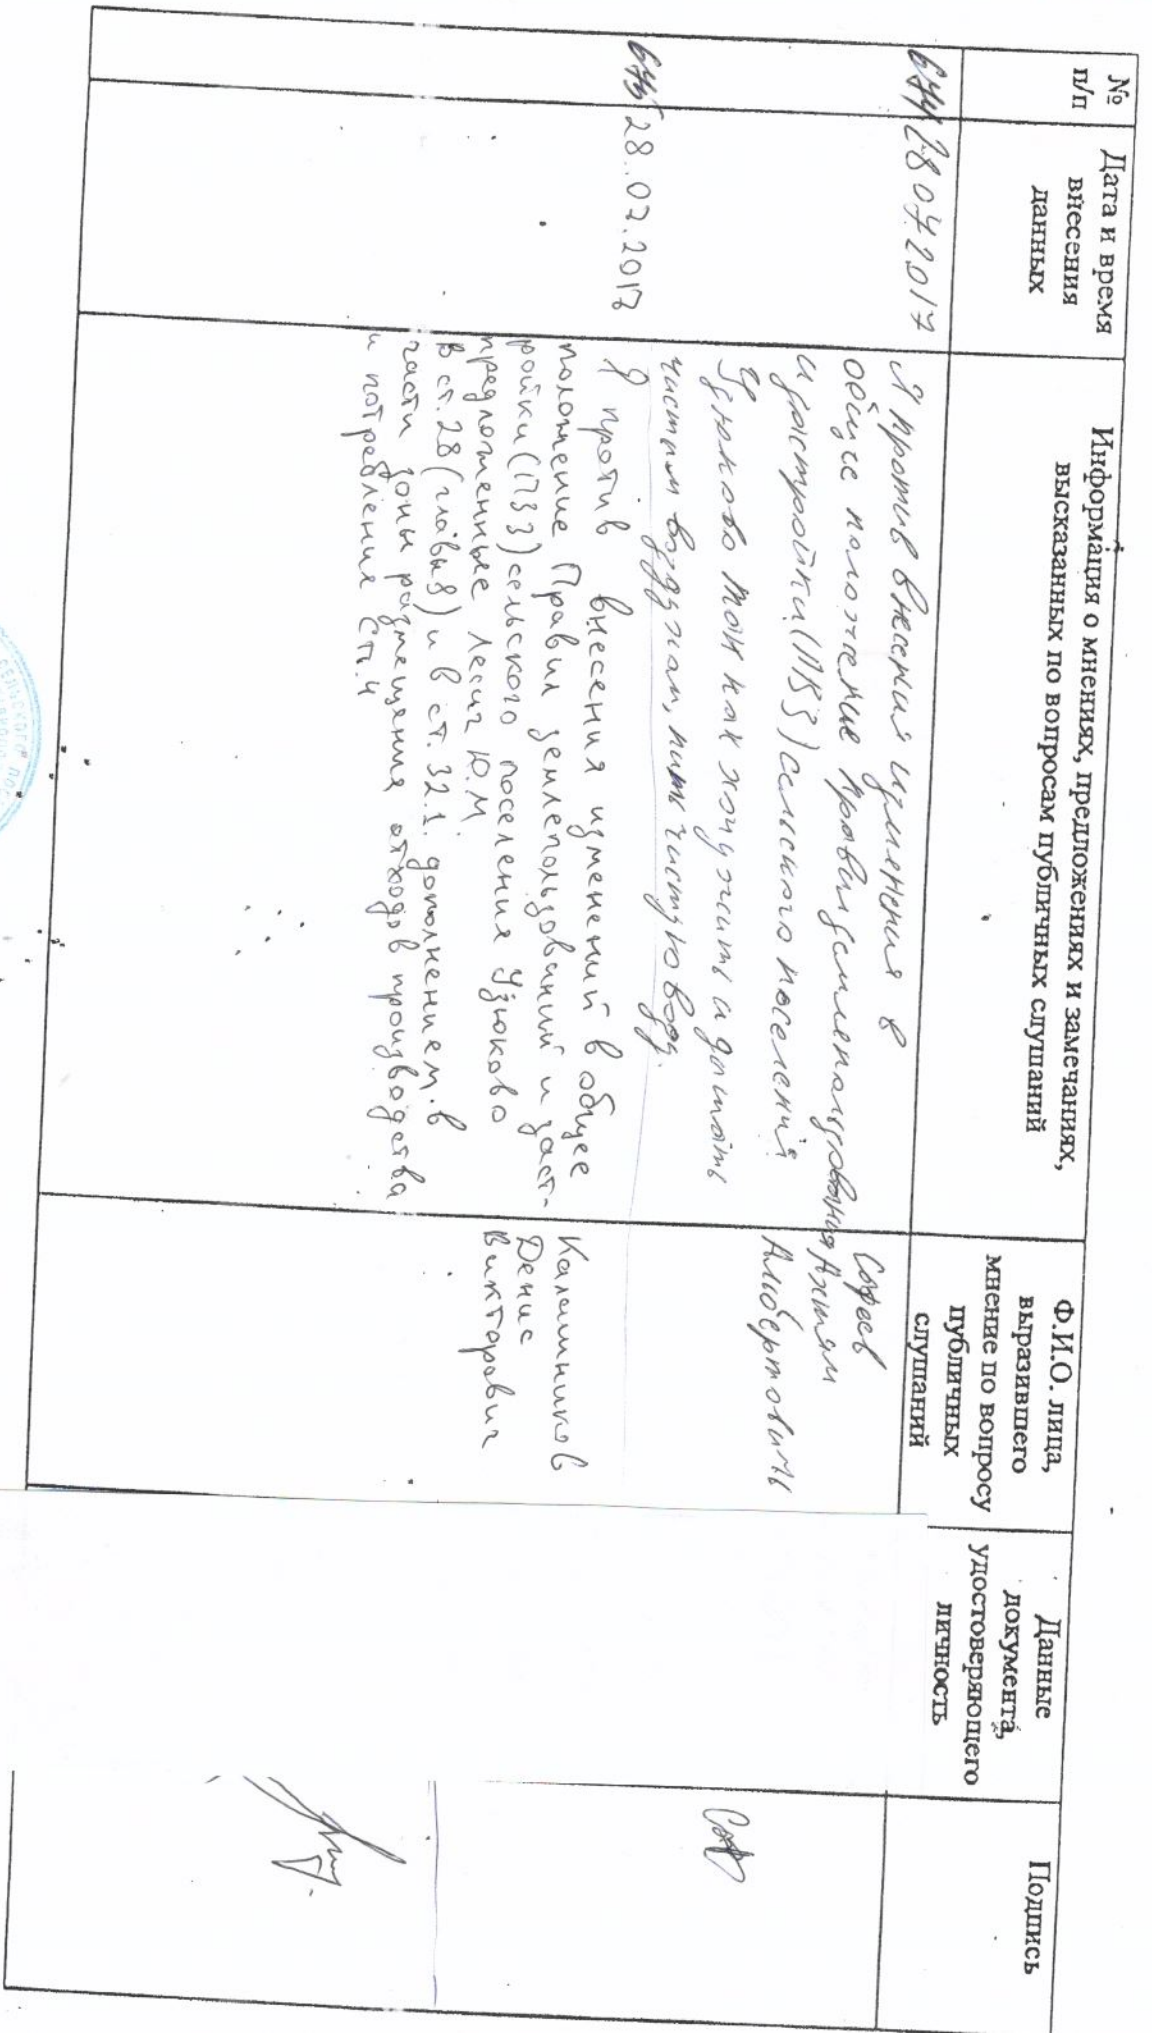 №
п/п
Дата и время
внесения
данных
Информация о мнениях, предложениях и замечаниях,
высказанных по вопросам публичных слушаний
Ф.И.О. лица,
выразившего
мнение по вопросу
публичных
слушаний
Данные
документа,
удостоверяющего
личность
Подпись
28.07.2017
Я против внесения изменения в
общее положение правил землепользования
и застройки (ПВЗ) сельского поселения
Узюково так как хочу жить и дышать
чистым воздухам, пить чистую воду.
Ахтям
Альбертовичь
28.07.2017
Я против внесения изменений в общее
положение Правил землепользваний и заст-
ройки (ПЗЗ) сельского поселения Узюково
предложенные Лесик Ю.М.
в ст.28 (главы 8) и в ст.32.1. дополнением. в
части зоны размещения отходов производства
и потребления Сп.4
Калашников
Денис
Викторович
СЕЛЬСКОГО